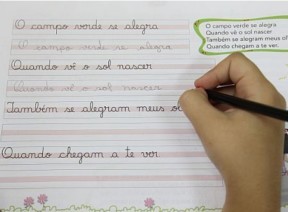 O campo verde se alegra
O campo verde se alegra
Quando vê o sol nascer
Quando vê o sol nascer
Também se alegram meus
Quando chegam a te ver.
O campo verde se alegra
Quando vê o sol nascer
Também se alegram meus
Quando chegam a te ver.